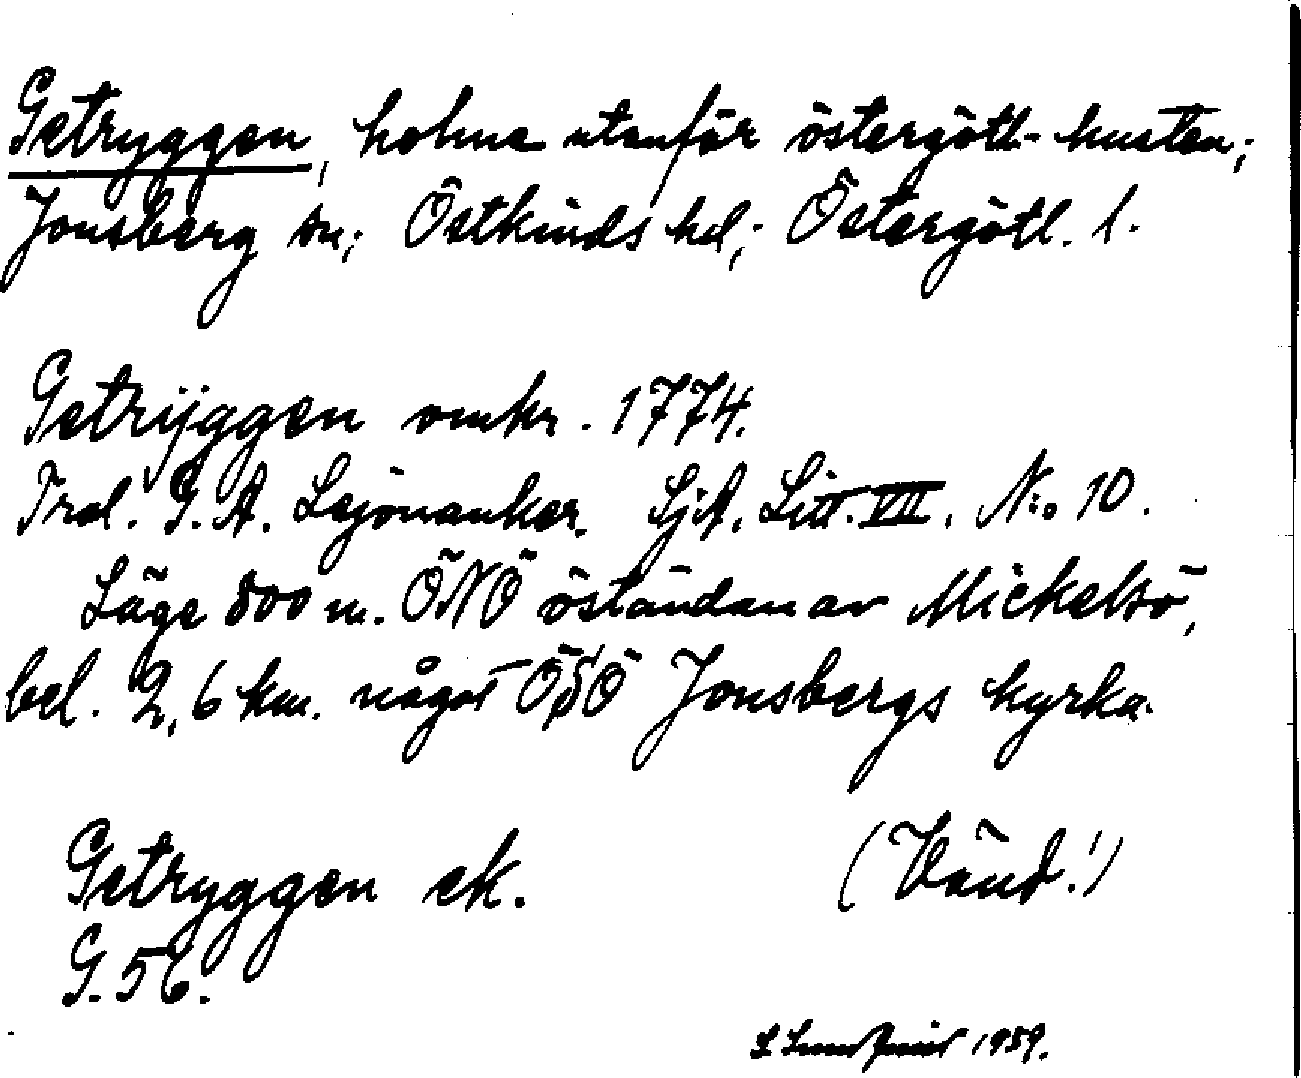 Getryggen, holme utanför östergötl. kusten;
Jonsberg sn; Östkinds hd; Östergötl. l.
Getrÿggen omkr. 1774.
Trol. G. A. Lejonanker. SjA. Litt. VII. N:o 10.
Läge 800 m. ÖNÖ östandan av Mickelsö,
bel. 2,6 km. något ÖSÖ Jonsbergs kyrka.
Getryggen ek. (Vänd!)
G. 56.
1959.